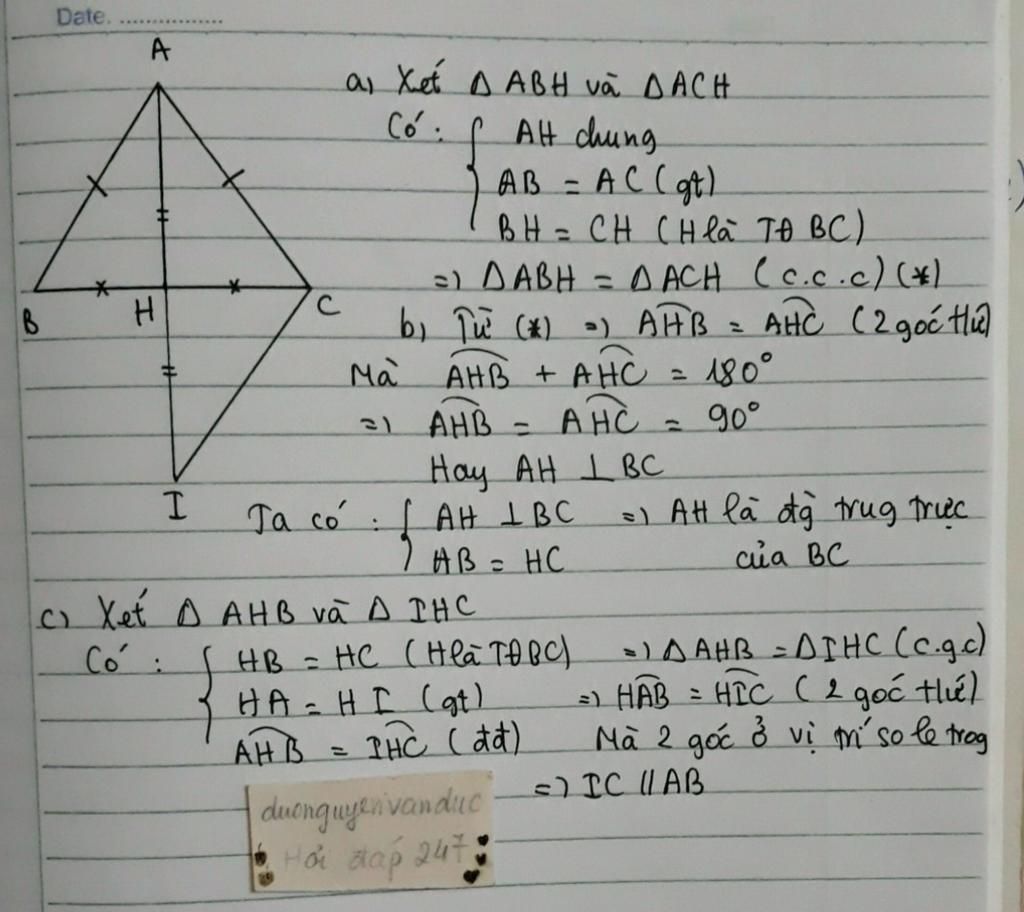 Date. ................
A
B
H
C
I
a) Xét Δ ABH và ΔACH
Có : { AH chung
AB = AC (gt)
BH = CH (H là TĐ BC)
=) ΔABH = ΔACH (c.c.c) (*)
b) Từ (*) =) AHB = AHC (2 góc tứ)
Mà AHB + AHC = 180°
=) AHB = AHC = 90°
Hay AH ⊥ BC
Ta có : { AH ⊥ BC =) AH là đg trug trực
AB = HC của BC
c) Xét Δ AHB và Δ IHC
Có : { HB = HC (H là TĐ BC) =) ΔAHB = ΔIHC (c.g.c)
HA = HI (gt) =) HAB = HIC (2 góc tứ)
AHB = IHC (đđ) Mà 2 góc ở vị trí so le trog
=) IC // AB
duonguyenvanduc
Hỏi đáp 247